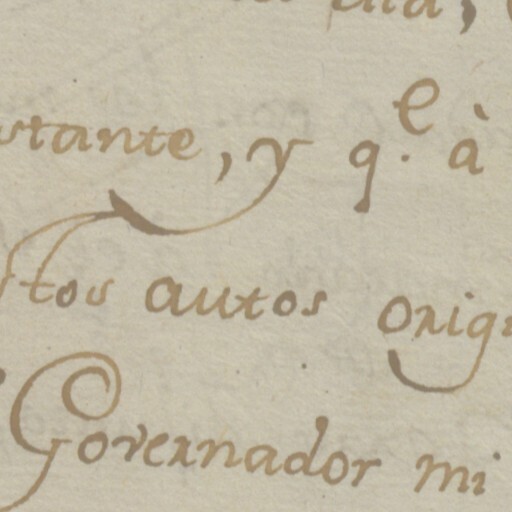 stante, y q.^e à
stos autos orig
Governador mi